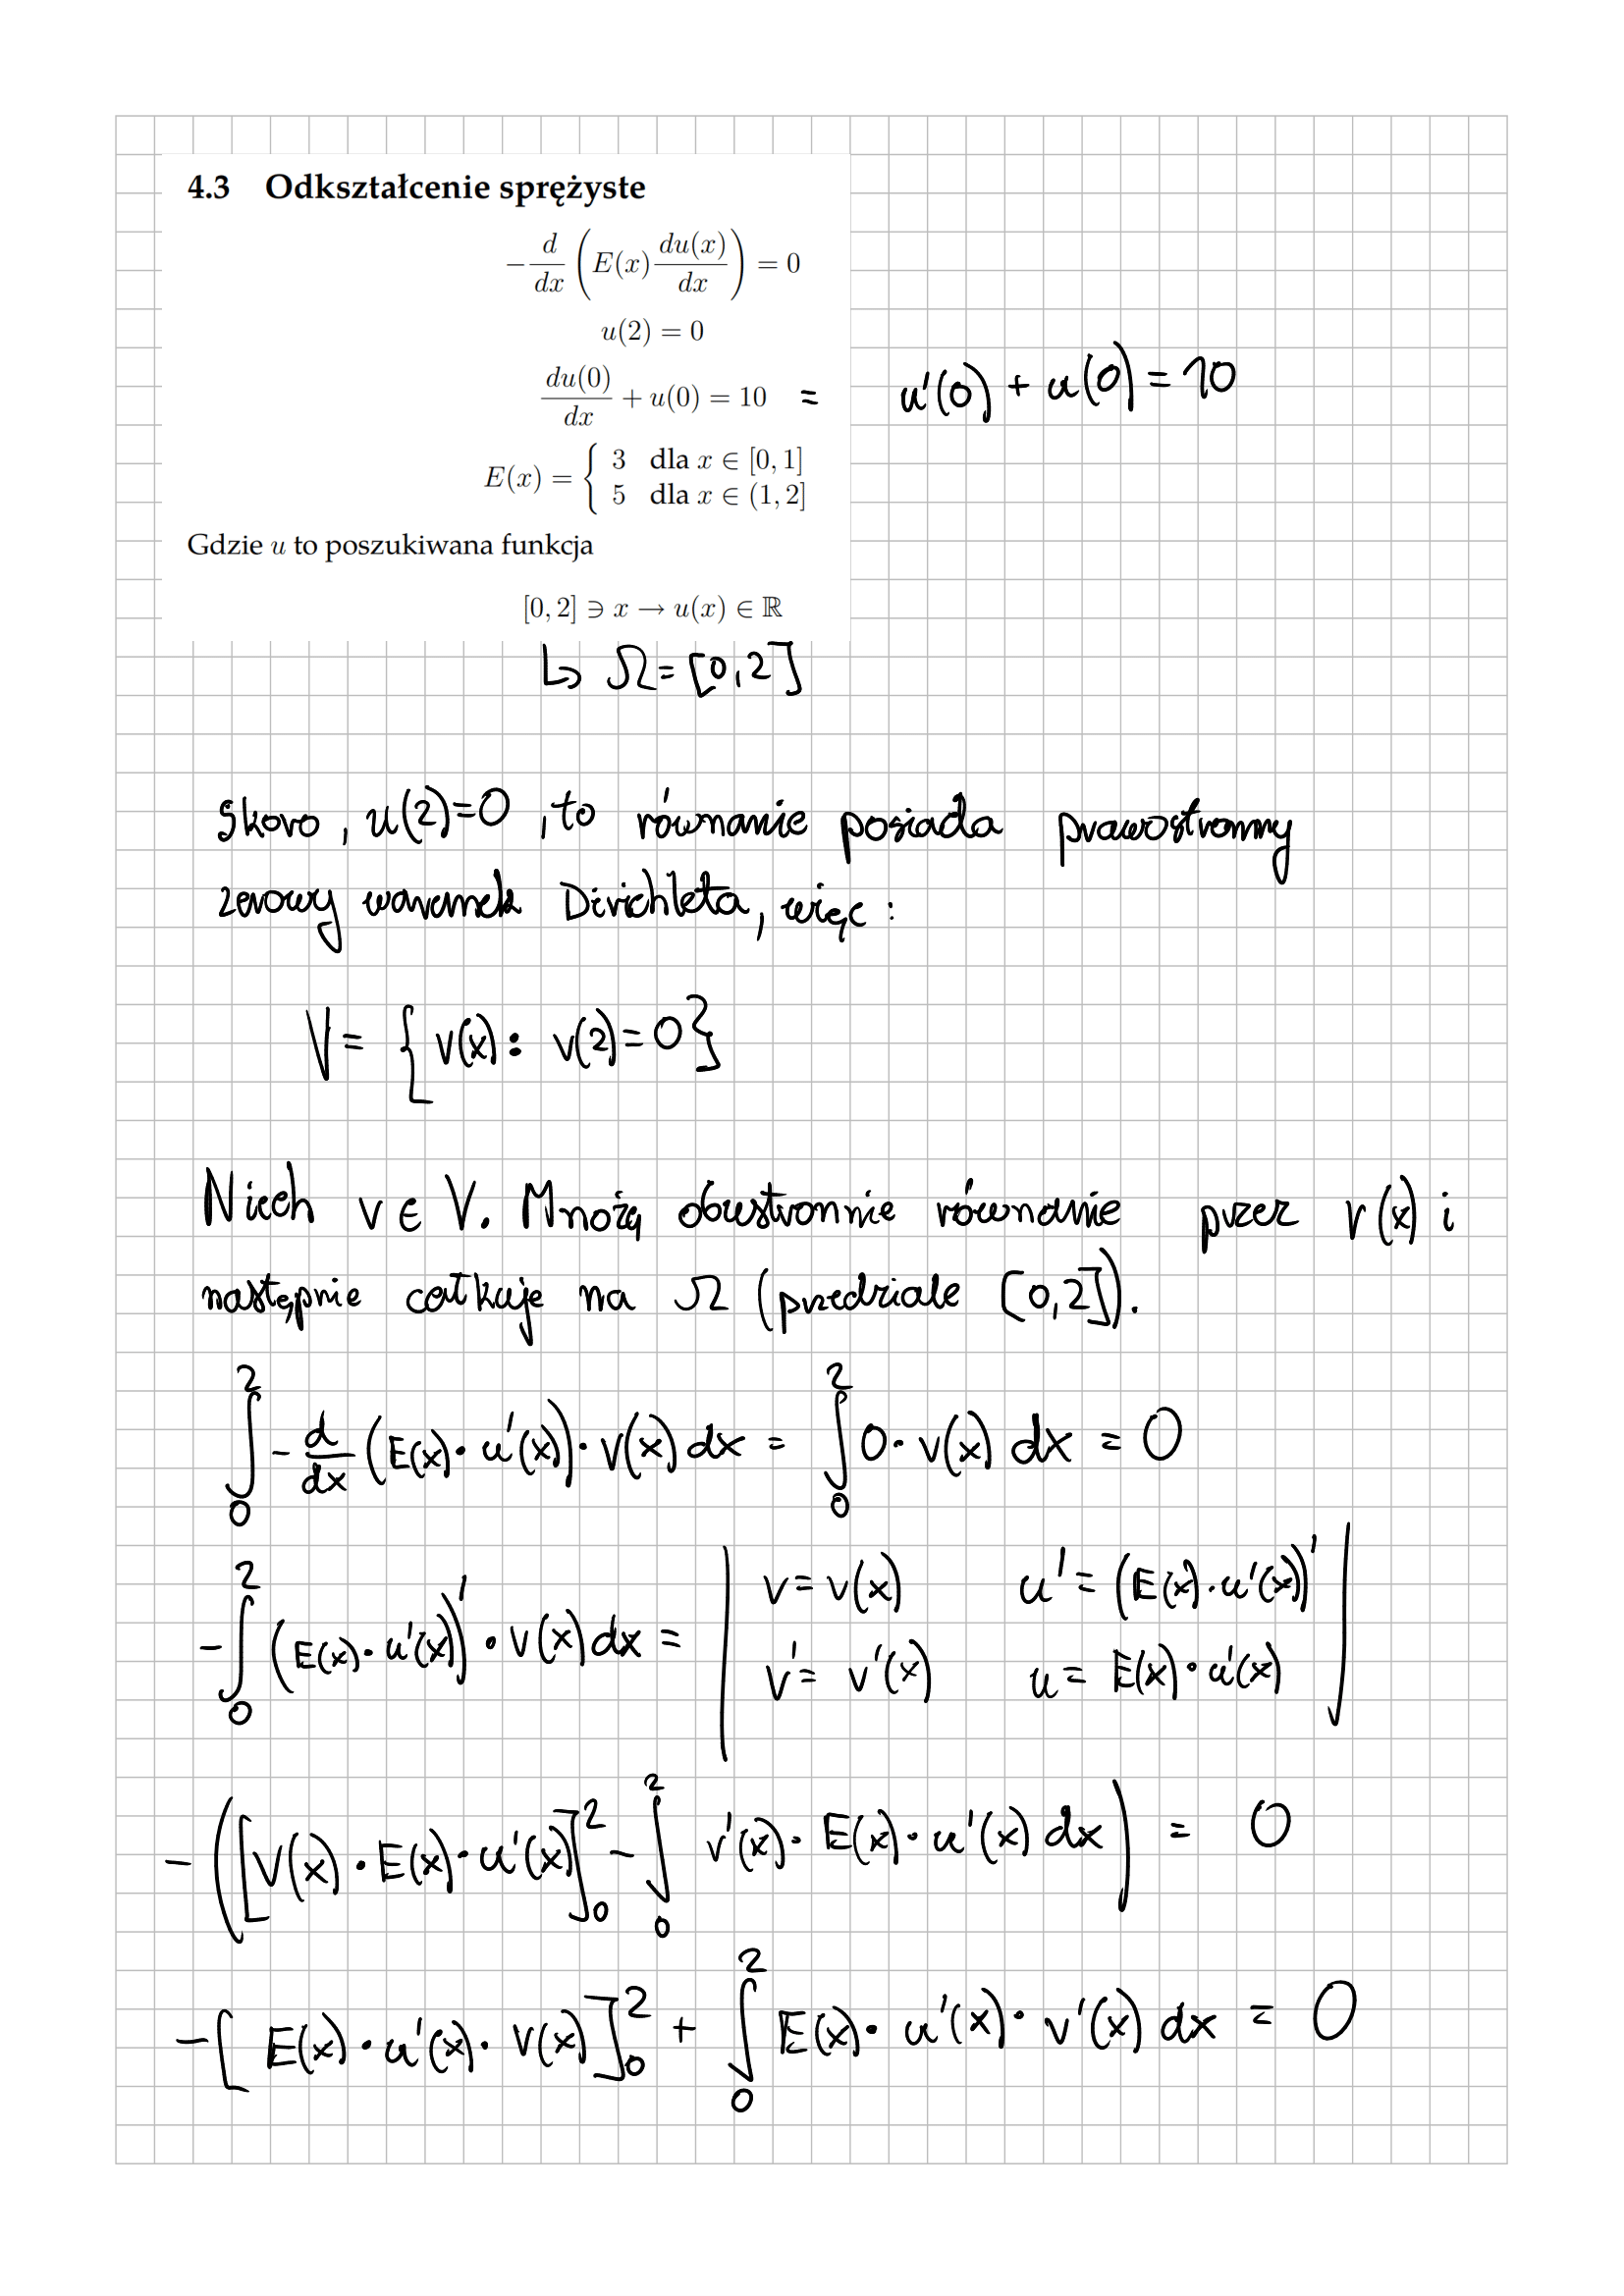 4.3 Odkształcenie sprężyste
-\frac{d}{dx}\left(E(x)\frac{du(x)}{dx}\right) = 0
u(2) = 0
\frac{du(0)}{dx} + u(0) = 10 = u'(0) + u(0) = 10
E(x) = \begin{cases} 3 & \text{dla } x \in [0,1] \\ 5 & \text{dla } x \in (1,2] \end{cases}
Gdzie u to poszukiwana funkcja
[0,2] ∋ x → u(x) ∈ ℝ
↳ Ω = [0,2]
skoro, u(2)=0, to równanie posiada prawostronny
zerowy warunek Dirichleta, więc:
V = { v(x): v(2)=0 }
Niech v ∈ V. Mnożę obustronnie równanie przez v(x) i
następnie całkuję na Ω (przedziale [0,2]).
\int_0^2 -\frac{d}{dx}(E(x)·u'(x))·v(x) dx = \int_0^2 0·v(x) dx = 0
-\int_0^2 (E(x)·u'(x))'·v(x) dx = | v = v(x) u' = (E(x)·u'(x))' |
v' = v'(x) u = E(x)·u'(x)
-([v(x)·E(x)·u'(x)]_0^2 - \int_0^2 v'(x)·E(x)·u'(x) dx) = 0
-[E(x)·u'(x)·v(x)]_0^2 + \int_0^2 E(x)·u'(x)·v'(x) dx = 0